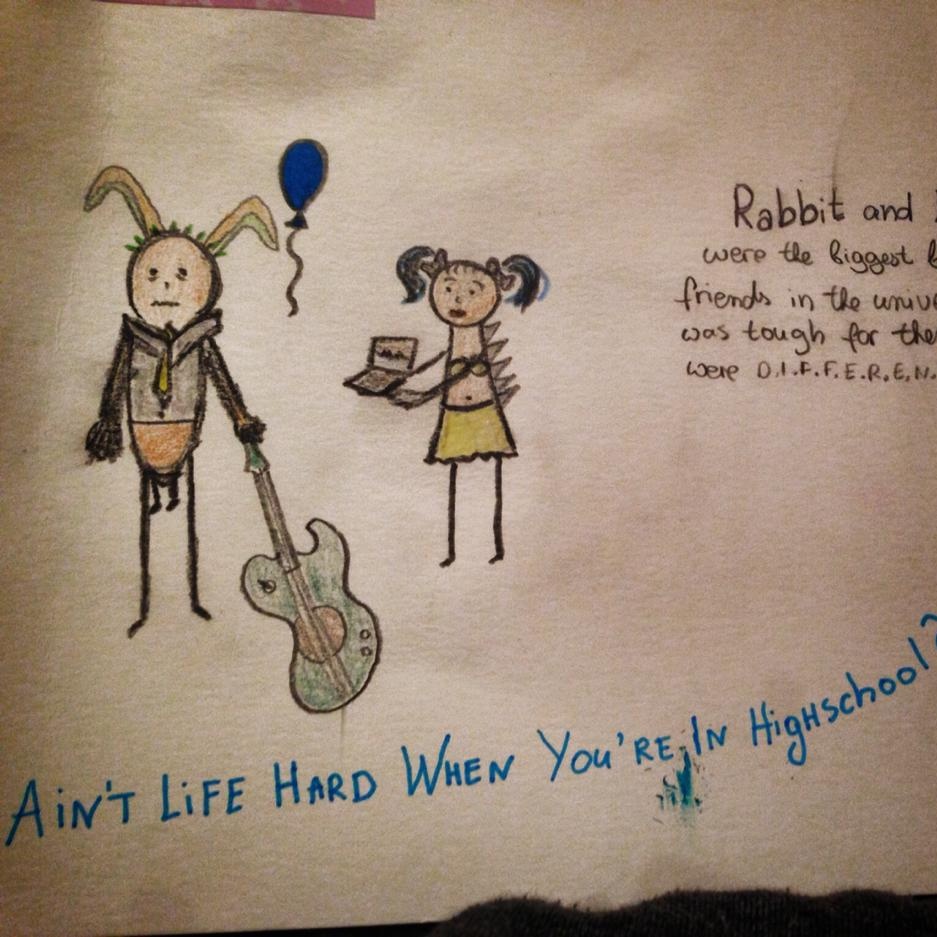 Rabbit and
were the biggest
friends in the
was tough for
were D.I.F.F.E.R.E.N.
AiN'T LiFE HARD WHEN YOU'RE IN HigHschool?